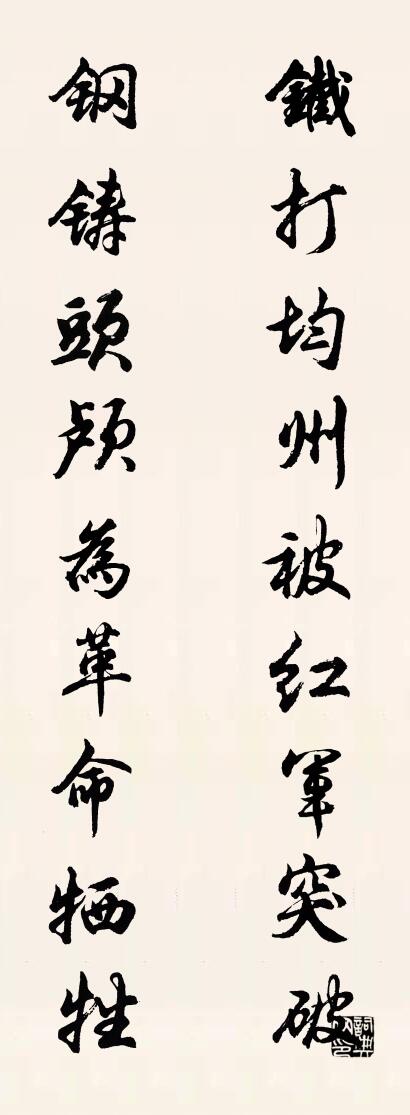 鐵打均州被红軍突破
鋼鑄頭颅為革命牺牲